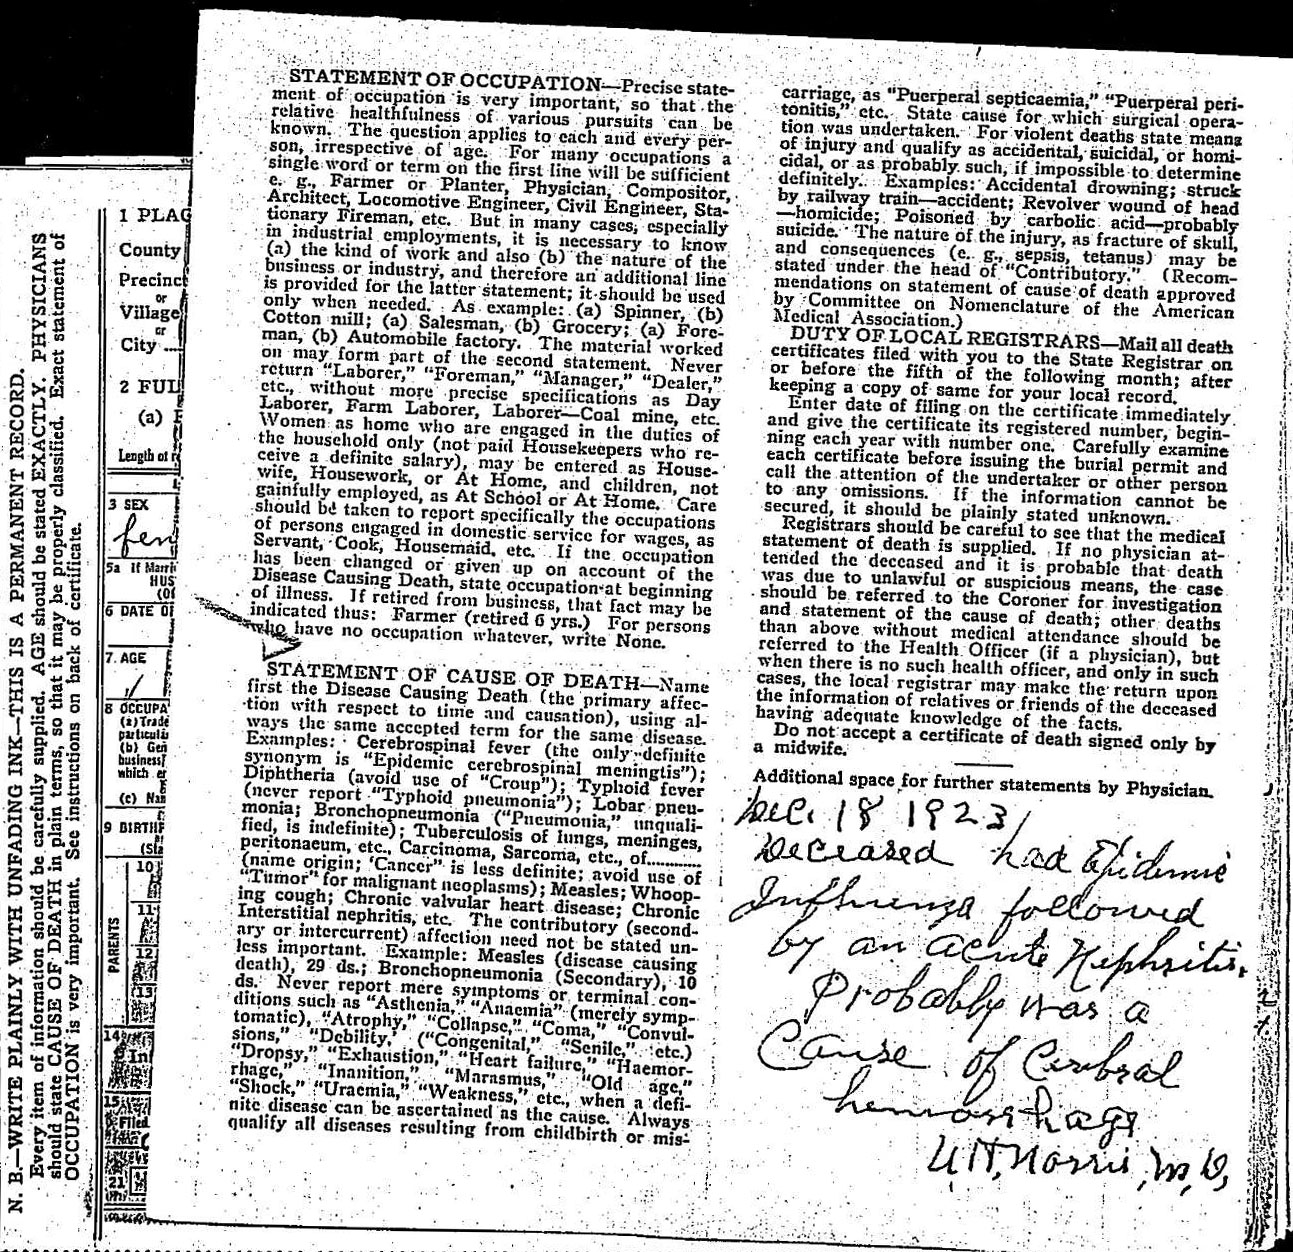 N. B.—WRITE PLAINLY WITH UNFADING INK—THIS IS A PERMANENT RECORD.
Every item of information should be carefully supplied. AGE should be stated EXACTLY. PHYSICIANS
should state CAUSE OF DEATH in plain terms, so that it may be properly classified. Exact statement of
OCCUPATION is very important. See instructions on back of certificate.
1 PLAC
County
Precinct
or
Village
or
City
2 FUL
(a)
Length of r
3 SEX
fem
5a If Marri
HUS
(Of
6 DATE OF
7. AGE
8 OCCUPA
(a) Trade
particula
(b) Gen
business
which e
(c) Nam
9 BIRTHP
(Sta
PARENTS
10
11
12
13
14
In
15
Filed
21
STATEMENT OF OCCUPATION—Precise state-
ment of occupation is very important, so that the
relative healthfulness of various pursuits can be
known. The question applies to each and every per-
son, irrespective of age. For many occupations a
single word or term on the first line will be sufficient
e. g., Farmer or Planter, Physician, Compositor,
Architect, Locomotive Engineer, Civil Engineer, Sta-
tionary Fireman, etc. But in many cases, especially
in industrial employments, it is necessary to know
(a) the kind of work and also (b) the nature of the
business or industry, and therefore an additional line
is provided for the latter statement; it should be used
only when needed. As example: (a) Spinner, (b)
Cotton mill; (a) Salesman, (b) Grocery; (a) Fore-
man, (b) Automobile factory. The material worked
on may form part of the second statement. Never
return "Laborer," "Foreman," "Manager," "Dealer,"
etc., without more precise specifications as Day
Laborer, Farm Laborer, Laborer—Coal mine, etc.
Women as home who are engaged in the duties of
the household only (not paid Housekeepers who re-
ceive a definite salary), may be entered as House-
wife, Housework, or At Home, and children, not
gainfully employed, as At School or At Home. Care
should be taken to report specifically the occupations
of persons engaged in domestic service for wages, as
Servant, Cook, Housemaid, etc. If the occupation
has been changed or given up on account of the
Disease Causing Death, state occupation at beginning
of illness. If retired from business, that fact may be
indicated thus: Farmer (retired 6 yrs.) For persons
who have no occupation whatever, write None.
STATEMENT OF CAUSE OF DEATH—Name
first the Disease Causing Death (the primary affec-
tion with respect to time and causation), using al-
ways the same accepted term for the same disease.
Examples: Cerebrospinal fever (the only definite
synonym is "Epidemic cerebrospinal meningtis");
Diphtheria (avoid use of "Croup"); Typhoid fever
(never report "Typhoid pneumonia"); Lobar pneu-
monia; Bronchopneumonia ("Pneumonia," unquali-
fied, is indefinite); Tuberculosis of lungs, meninges,
peritonaeum, etc., Carcinoma, Sarcoma, etc., of............
(name origin; 'Cancer" is less definite; avoid use of
"Tumor" for malignant neoplasms); Measles; Whoop-
ing cough; Chronic valvular heart disease; Chronic
Interstitial nephritis, etc. The contributory (second-
ary or intercurrent) affection need not be stated un-
less important. Example: Measles (disease causing
death), 29 ds.; Bronchopneumonia (Secondary), 10
ds. Never report mere symptoms or terminal con-
ditions such as "Asthenia," "Anaemia" (merely symp-
tomatic), "Atrophy," "Collapse," "Coma," "Convul-
sions," "Debility,' ("Congenital," "Senile," etc.)
"Dropsy," "Exhaustion," "Heart failure," "Haemor-
rhage," "Inanition," "Marasmus," "Old age,"
"Shock," "Uraemia," "Weakness," etc., when a defi-
nite disease can be ascertained as the cause. Always
qualify all diseases resulting from childbirth or mis-
carriage, as "Puerperal septicaemia," "Puerperal peri-
tonitis," etc. State cause for which surgical opera-
tion was undertaken. For violent deaths state means
of injury and qualify as accidental, suicidal, or homi-
cidal, or as probably such, if impossible to determine
definitely. Examples: Accidental drowning; struck
by railway train—accident; Revolver wound of head
—homicide; Poisoned by carbolic acid—probably
suicide. The nature of the injury, as fracture of skull,
and consequences (e. g., sepsis, tetanus) may be
stated under the head of "Contributory." (Recom-
mendations on statement of cause of death approved
by Committee on Nomenclature of the American
Medical Association.)
DUTY OF LOCAL REGISTRARS—Mail all death
certificates filed with you to the State Registrar on
or before the fifth of the following month; after
keeping a copy of same for your local record.
Enter date of filing on the certificate immediately
and give the certificate its registered number, begin-
ning each year with number one. Carefully examine
each certificate before issuing the burial permit and
call the attention of the undertaker or other person
to any omissions. If the information cannot be
secured, it should be plainly stated unknown.
Registrars should be careful to see that the medical
statement of death is supplied. If no physician at-
tended the deceased and it is probable that death
was due to unlawful or suspicious means, the case
should be referred to the Coroner for investigation
and statement of the cause of death; other deaths
than above without medical attendance should be
referred to the Health Officer (if a physician), but
when there is no such health officer, and only in such
cases, the local registrar may make the return upon
the information of relatives or friends of the deceased
having adequate knowledge of the facts.
Do not accept a certificate of death signed only by
a midwife.
Additional space for further statements by Physician.
Dec. 18 1923
Deceased had Epidemic
Influenza followed
by an acute Nephritis.
Probably was a
Cause of Cerebral
hemorrhage
U.H. Norris, M.D.